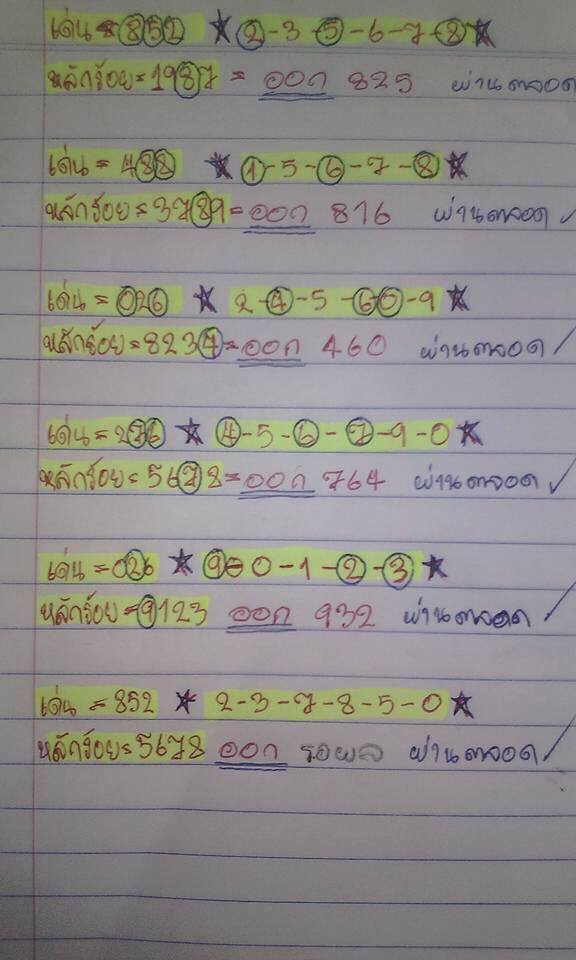 เด่น = 852 ★ 2-3-5-6-7-8 ★
หลักร้อย = 1987 = ออก 825 ผ่านตลอด
เด่น = 488 ★ 1-5-6-7-8 ★
หลักร้อย = 3789 = ออก 816 ผ่านตลอด ✓
เด่น = 026 ★ 2-4-5-60-9 ★
หลักร้อย = 8234 = ออก 460 ผ่านตลอด ✓
เด่น = 276 ★ 4-5-6-7-9-0 ★
หลักร้อย = 5678 = ออก 764 ผ่านตลอด ✓
เด่น = 026 ★ 9-0-1-2-3 ★
หลักร้อย = 9123 ออก 932 ผ่านตลอด ✓
เด่น = 852 ★ 2-3-7-8-5-0 ★
หลักร้อย = 5678 ออก รอผล ผ่านตลอด ✓